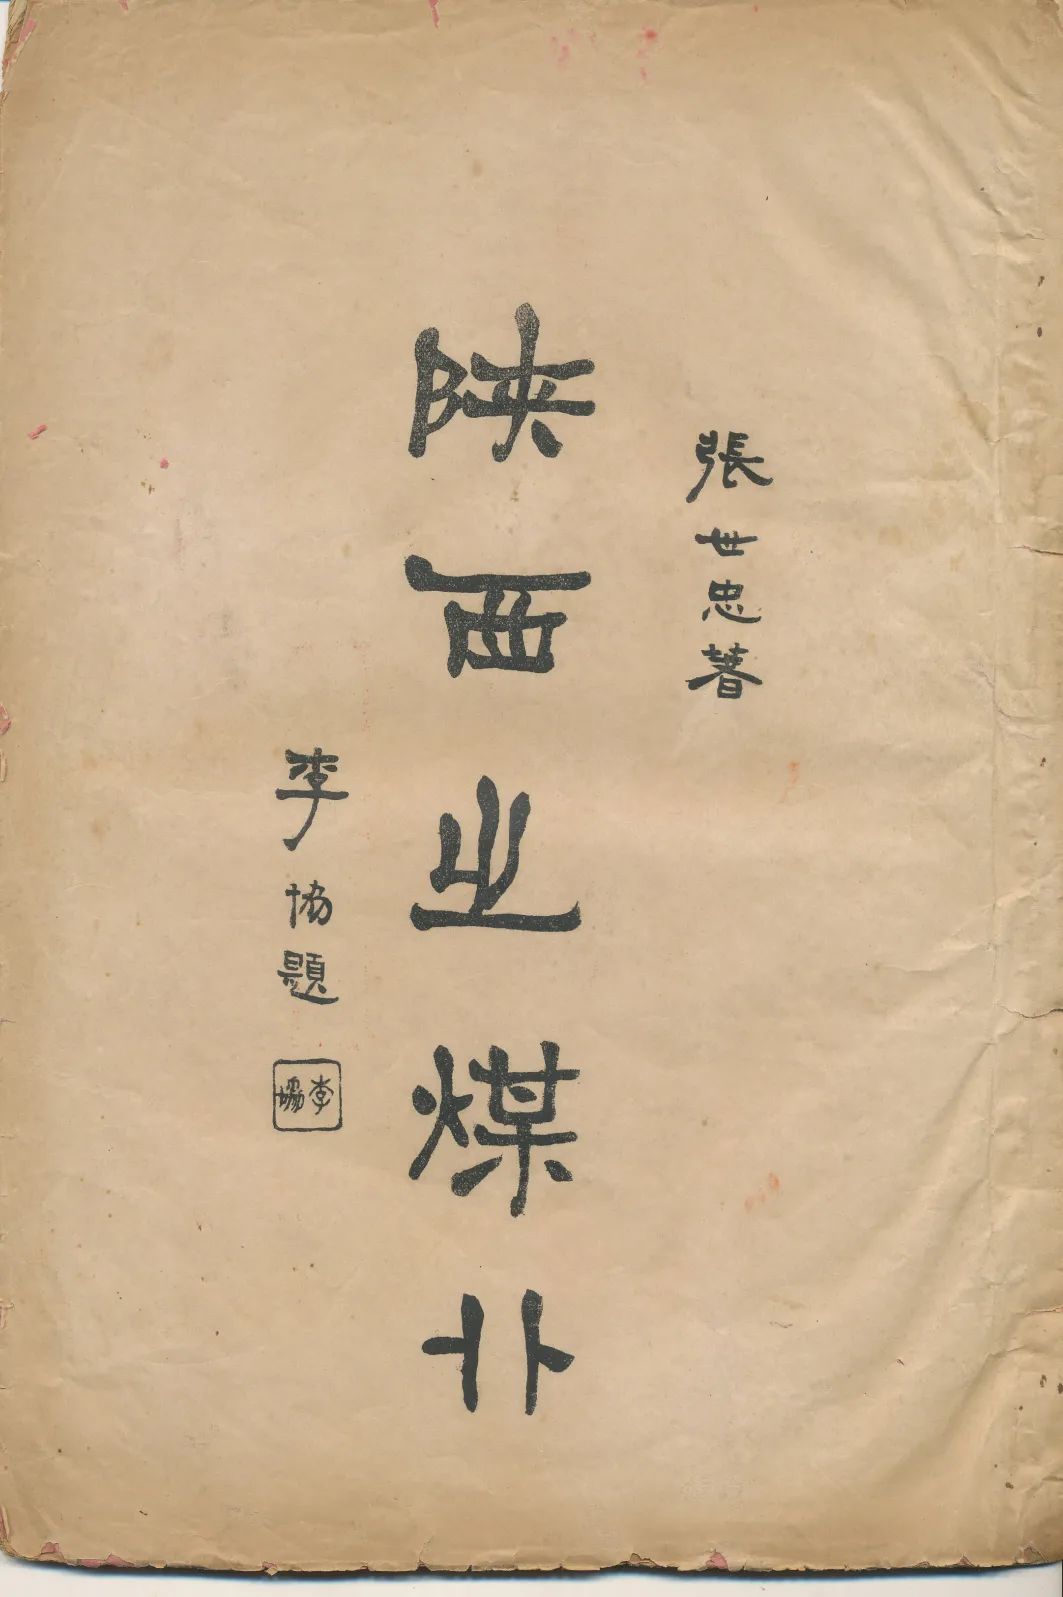 張世忠著
陝西之煤卝
李協題
李協